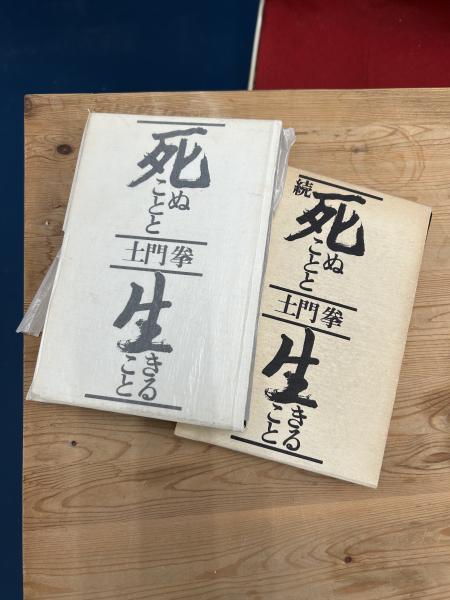 死ぬことと
土門拳
生きること
続
死ぬことと
土門拳
生きること